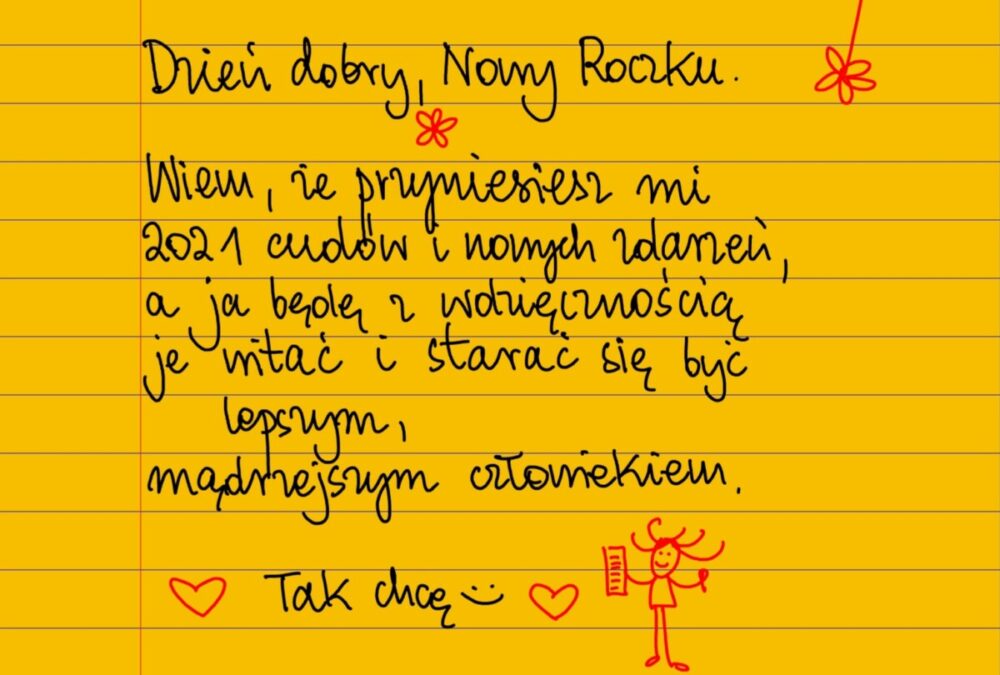 Dzień dobry, Nowy Roczku.
Wiem, że przyniesiesz mi
2021 cudów i nowych zdarzeń,
a ja będę z wdzięcznością
je witać i starać się być
lepszym,
mądrzejszym człowiekiem.
Tak chcę